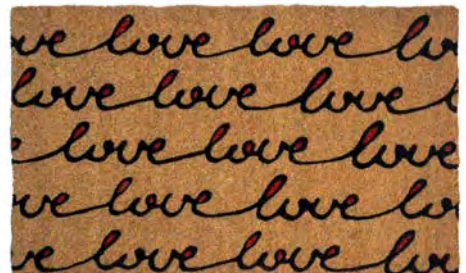 ve love love lo
love love love l
e love love love
ove love love lo
ve love love lov